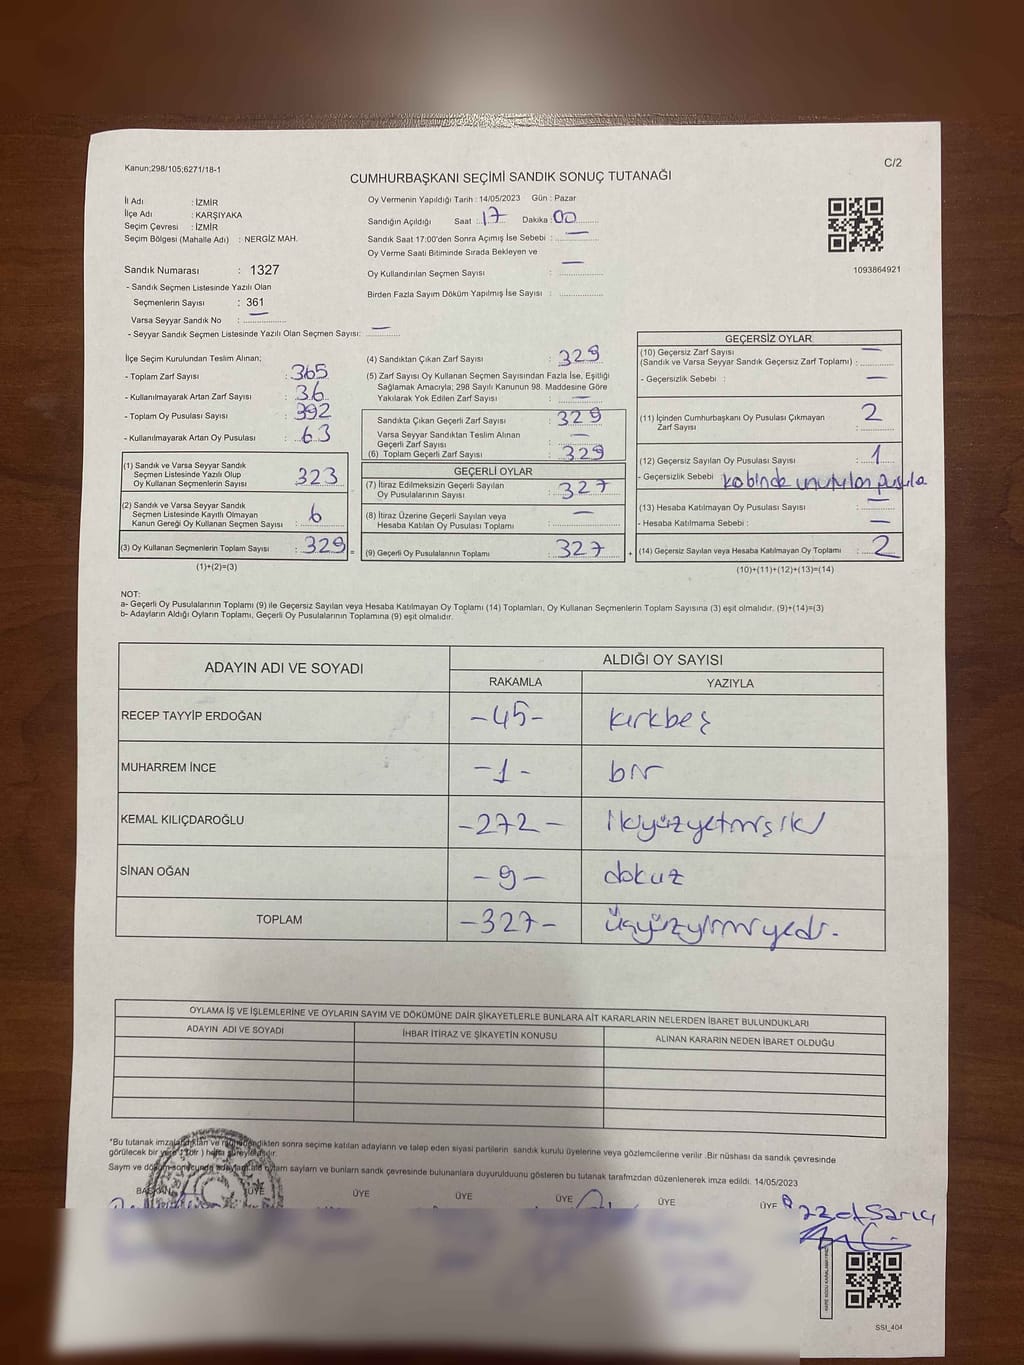 Kanun;298/105;6271/18-1
C/2
CUMHURBAŞKANI SEÇİMİ SANDIK SONUÇ TUTANAĞI
İl Adı : İZMİR
İlçe Adı : KARŞIYAKA
Seçim Çevresi : İZMİR
Seçim Bölgesi (Mahalle Adı) : NERGİZ MAH.
Oy Vermenin Yapıldığı Tarih : 14/05/2023 Gün : Pazar
Sandığın Açıldığı Saat : 17 Dakika : 00
Sandık Saat 17:00'den Sonra Açımış İse Sebebi : —
Oy Verme Saati Bitiminde Sırada Bekleyen ve
Oy Kullandırılan Seçmen Sayısı : —
Birden Fazla Sayım Döküm Yapılmış İse Sayısı :
1093864921
Sandık Numarası : 1327
- Sandık Seçmen Listesinde Yazılı Olan
Seçmenlerin Sayısı : 361
Varsa Seyyar Sandık No : —
- Seyyar Sandık Seçmen Listesinde Yazılı Olan Seçmen Sayısı: —
İlçe Seçim Kurulundan Teslim Alınan;
- Toplam Zarf Sayısı : 365
- Kullanılmayarak Artan Zarf Sayısı : 36
- Toplam Oy Pusulası Sayısı : 392
- Kullanılmayarak Artan Oy Pusulası : 63
(1) Sandık ve Varsa Seyyar Sandık
Seçmen Listesinde Yazılı Olup
Oy Kullanan Seçmenlerin Sayısı : 323
(2) Sandık ve Varsa Seyyar Sandık
Seçmen Listesinde Kayıtlı Olmayan
Kanun Gereği Oy Kullanan Seçmen Sayısı : 6
(3) Oy Kullanan Seçmenlerin Toplam Sayısı : 329 =
(1)+(2)=(3)
(4) Sandıktan Çıkan Zarf Sayısı : 329
(5) Zarf Sayısı Oy Kullanan Seçmen Sayısından Fazla İse, Eşitliği
Sağlamak Amacıyla; 298 Sayılı Kanunun 98. Maddesine Göre
Yakılarak Yok Edilen Zarf Sayısı : —
Sandıkta Çıkan Geçerli Zarf Sayısı : 329
Varsa Seyyar Sandıktan Teslim Alınan
Geçerli Zarf Sayısı : —
(6) Toplam Geçerli Zarf Sayısı : 329
GEÇERLİ OYLAR
(7) İtiraz Edilmeksizin Geçerli Sayılan
Oy Pusulalarının Sayısı : 327
(8) İtiraz Üzerine Geçerli Sayılan veya
Hesaba Katılan Oy Pusulası Toplamı : —
(9) Geçerli Oy Pusulalarının Toplamı : 327 +
GEÇERSİZ OYLAR
(10) Geçersiz Zarf Sayısı —
(Sandık ve Varsa Seyyar Sandık Geçersiz Zarf Toplamı) :
- Geçersizlik Sebebi : —
(11) İçinden Cumhurbaşkanı Oy Pusulası Çıkmayan 2
Zarf Sayısı :
(12) Geçersiz Sayılan Oy Pusulası Sayısı : 1
- Geçersizlik Sebebi kabinde unutulan pusula
(13) Hesaba Katılmayan Oy Pusulası Sayısı : —
- Hesaba Katılmama Sebebi : —
(14) Geçersiz Sayılan veya Hesaba Katılmayan Oy Toplamı : 2
(10)+(11)+(12)+(13)=(14)
NOT:
a- Geçerli Oy Pusulalarının Toplamı (9) ile Geçersiz Sayılan veya Hesaba Katılmayan Oy Toplamı (14) Toplamları, Oy Kullanan Seçmenlerin Toplam Sayısına (3) eşit olmalıdır. (9)+(14)=(3)
b- Adayların Aldığı Oyların Toplamı, Geçerli Oy Pusulalarının Toplamına (9) eşit olmalıdır.
ADAYIN ADI VE SOYADI
ALDIĞI OY SAYISI
RAKAMLA YAZIYLA
RECEP TAYYİP ERDOĞAN -45- kırkbeş
MUHARREM İNCE -1- bir
KEMAL KILIÇDAROĞLU -272- ikiyüzyetmişiki
SİNAN OĞAN -9- dokuz
TOPLAM -327- üçyüzyirmiyedi.
OYLAMA İŞ VE İŞLEMLERİNE VE OYLARIN SAYIM VE DÖKÜMÜNE DAİR ŞİKAYETLERLE BUNLARA AİT KARARLARIN NELERDEN İBARET BULUNDUKLARI
ADAYIN ADI VE SOYADI İHBAR İTİRAZ VE ŞİKAYETİN KONUSU ALINAN KARARIN NEDEN İBARET OLDUĞU
*Bu tutanak imzalandıktan ve mühürlendikten sonra seçime katılan adayların ve talep eden siyasi partilerin sandık kurulu üyelerine veya gözlemcilerine verilir .Bir nüshası da sandık çevresinde
görülecek bir yere 1 (bir ) hafta süreyle asılır.
Sayım ve döküm sonucunda adayların oylarını sandık çevresinde bulunanlara duyurulduğunu gösteren bu tutanak tarafımızdan düzenlenerek imza edildi. 14/05/2023
BAŞKAN ÜYE ÜYE ÜYE ÜYE ÜYE ÜYE
Sarıçı
SSI_404